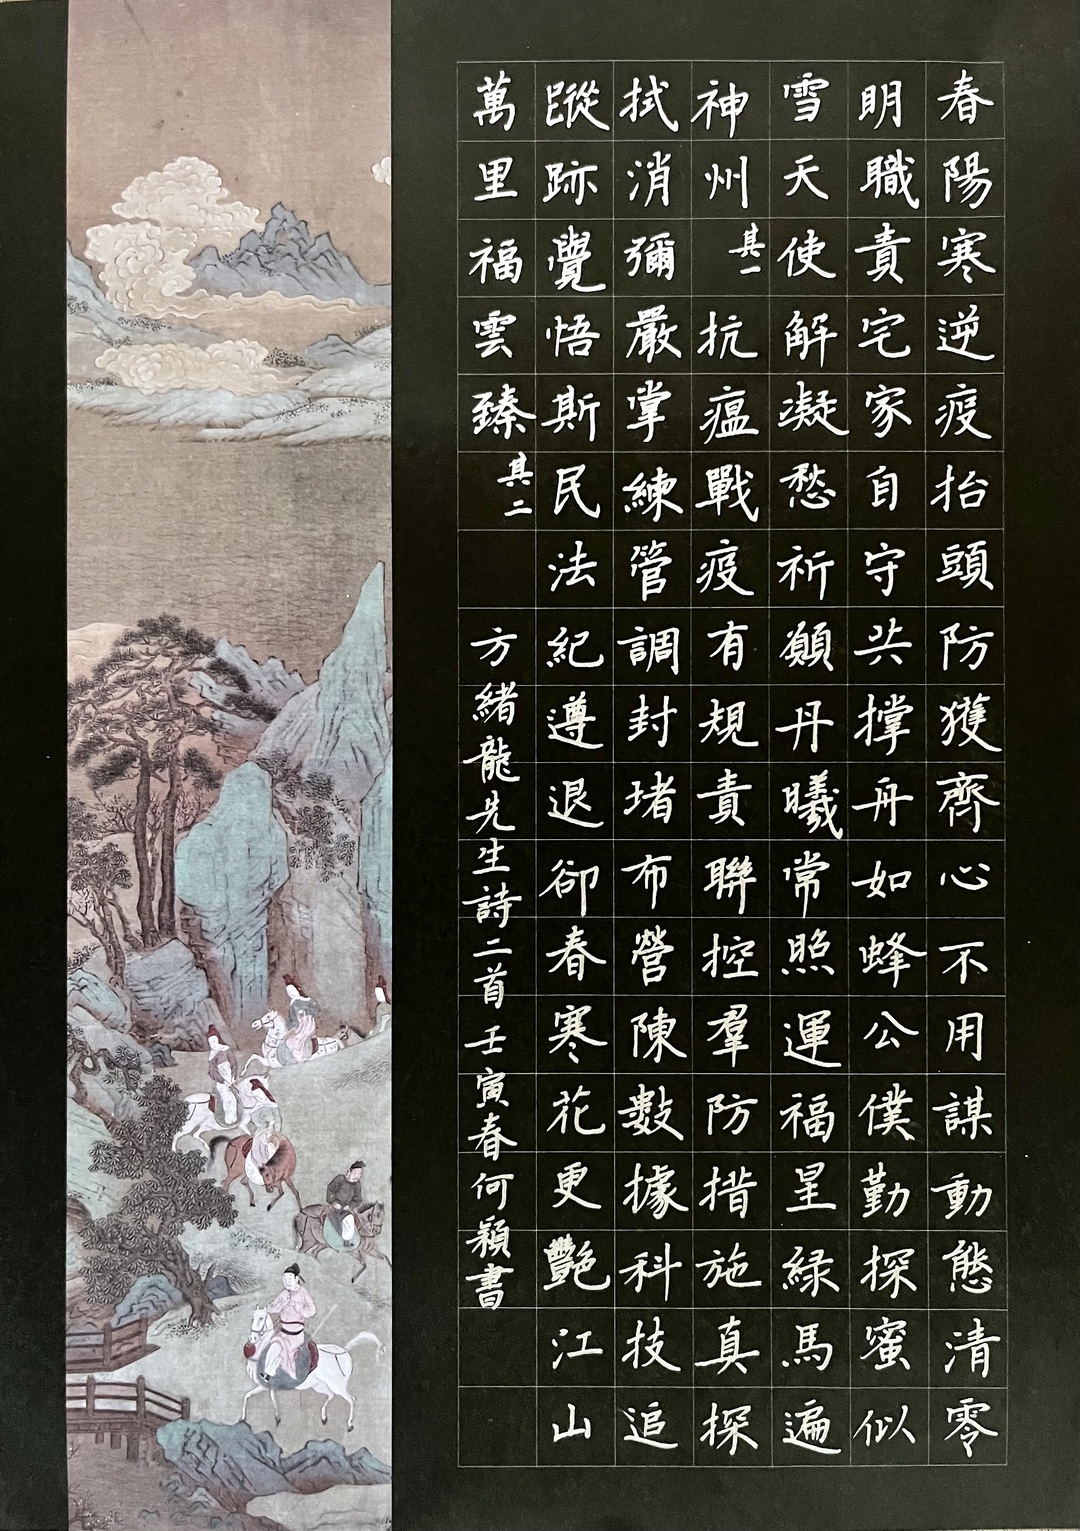 春陽寒逆疫抬頭防獲齊心不用謀動態清零
明職責宅家自守共撐舟如蜂公僕勤探蜜似
雪天使解凝愁祈願丹曦常照運福星綠馬遍
神州其一抗瘟戰疫有規責聯控羣防措施真探
拭消彌嚴掌練管調封堵布營陳數據科技追
蹤跡覺悟斯民法紀遵退卻春寒花更艷江山
萬里福雲臻其二方緒龍先生詩二首壬寅春何穎書